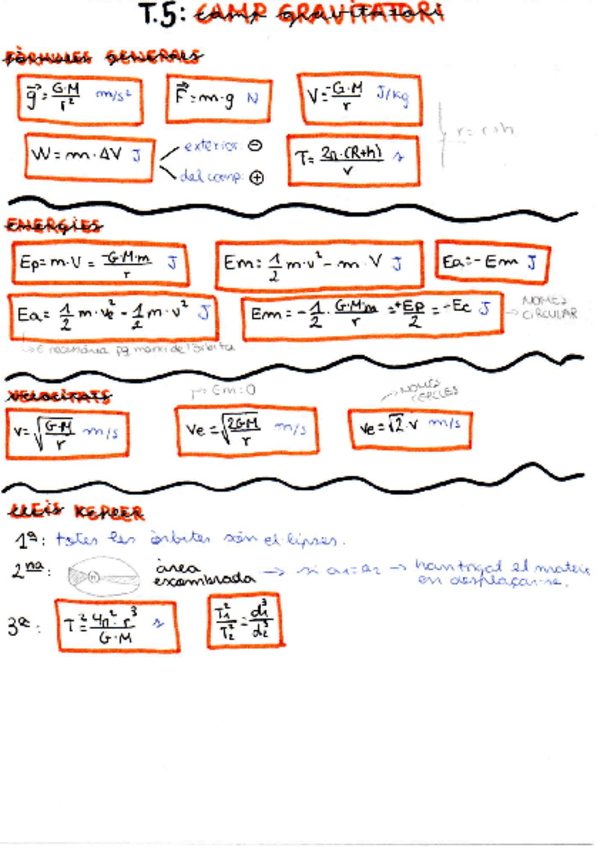 T.5: CAMP GRAVITATORI
FÒRMULES GENERALS
g⃗ = G·M/r² m/s²
F⃗ = m·g N
V = -G·M/r J/kg
r = r+h
W = m·ΔV J
exterior ⊖
del camp: ⊕
T = 2π·(R+h)/v s
ENERGIES
Ep = m·V = -G·M·m/r J
Em = 1/2 m·v² - m·V J
Ea = -Em J
Ea = 1/2 m·ve² - 1/2 m·v² J
Em = -1/2 · G·M·m/r = +Ep/2 = -Ec J → NOMÉS CIRCULAR
→ E necessària pq marxi de l'òrbita
VELOCITATS
v = √(G·M/r) m/s
→ Em=0
ve = √(2GM/r) m/s
→ NOMÉS CERCLES
ve = √2·v m/s
LLEIS KEPLER
1ª: totes les òrbites són el·lipses.
2na: àrea escombrada → si a1=a2 → han trigat el mateix en desplaçar-se.
3ª: T² = 4π²·r³/G·M s
T1²/T2² = d1³/d2³